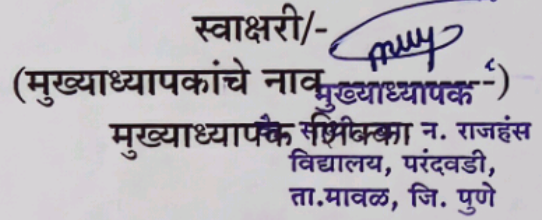 स्वाक्षरी/-
(मुख्याध्यापकांचे नाव -----------)
मुख्याध्यापक
मुख्याध्यापक शिक्का न. राजहंस
विद्यालय, परंदवडी,
ता.मावळ, जि. पुणे